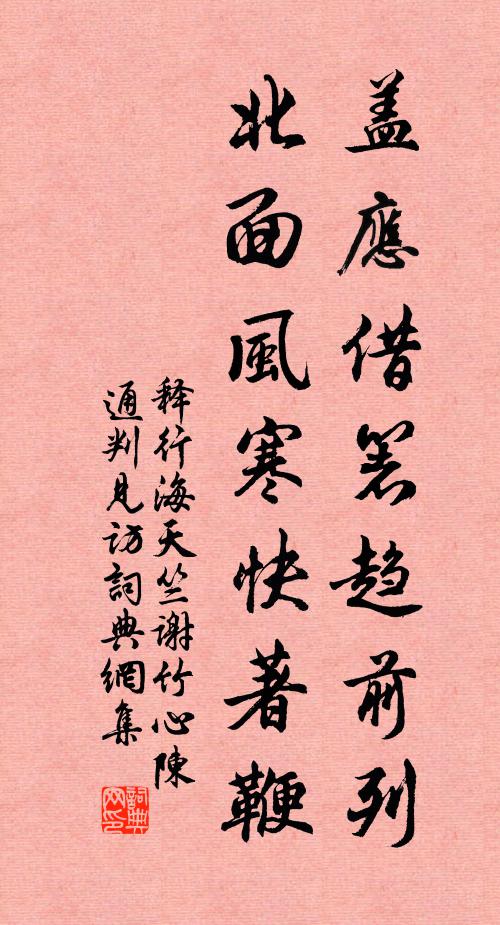 盖應借箸趋前列
北面風寒快著鞭
释行海天竺谢竹心陳
通判见访詞典網集
詞典
网印